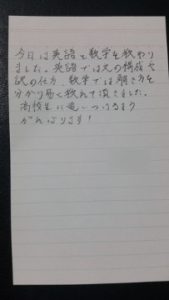 今日は英語と数学を教わり
ました。英語では文の構成や
訳の仕方、数学では解き方を
分かり易く教えて頂きました。
高校生に追いつけるよう
がんばります!